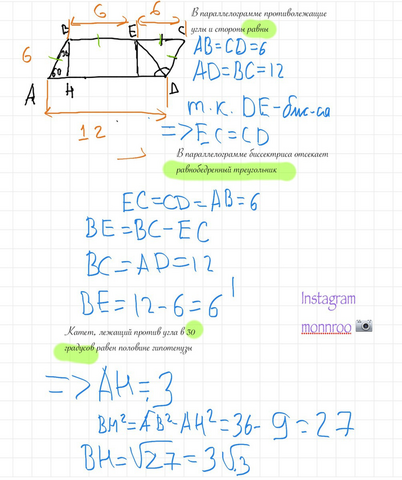 6 6
B E C
6
30
60
A H D
12
В параллелограмме противолежащие
углы и стороны равны
AB=CD=6
AD=BC=12
т.к. DE-бис-са
=>EC=CD
В параллелограмме биссектриса отсекает
равнобедренный треугольник
EC=CD=AB=6
BE=BC-EC
BC=AD=12
BE=12-6=6
Instagram
monnroo
Катет, лежащий против угла в 30
градусов равен половине гипотенузы
=>AH=3
BH²=AB²-AH²=36-9=27
BH=√27=3√3